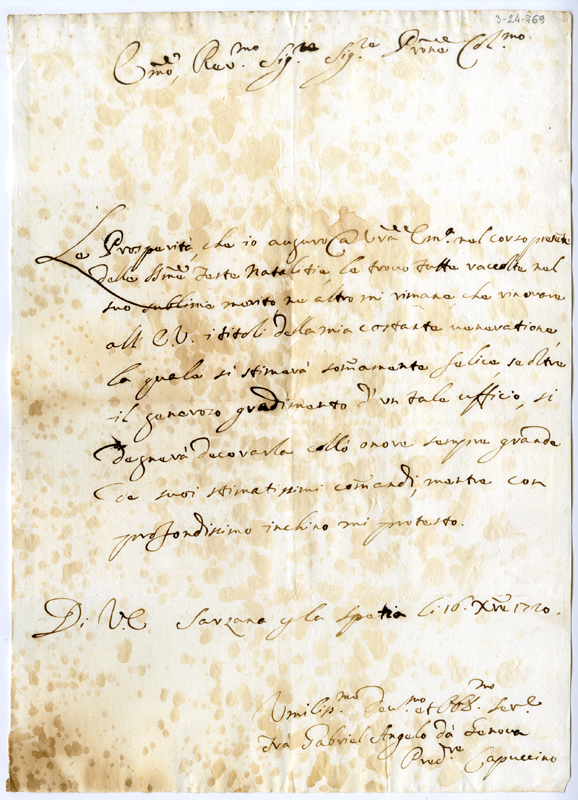 3-24-769
Emo, Rev.mo Sig.re Sig.re Prone Col.mo
Le Prosperità, che io auguro a Vra Em.a nel corso presente
delle SSme Feste Natalitie, le trovo tutte raccolte nel
suo sublime merito, ne altro mi rimane, che rinovare
all' E.V. i titoli della mia costante veneratione,
la quale si stimerà somamente felice, se oltre
il generoso gradimento d'un tale ufficio, si
degnerà decorarla collo onore sempre grande
de suoi stimatissimi comandi, mentre con
profondissimo inchino mi protesto.
Di V.E Sarzana p la Spetia li 16. Xbre 1720.
Umiliss.mo dev.mo et obb.mo Ser.e
Frà Gabriel Angelo dà Genova
Pred.re Capuccino